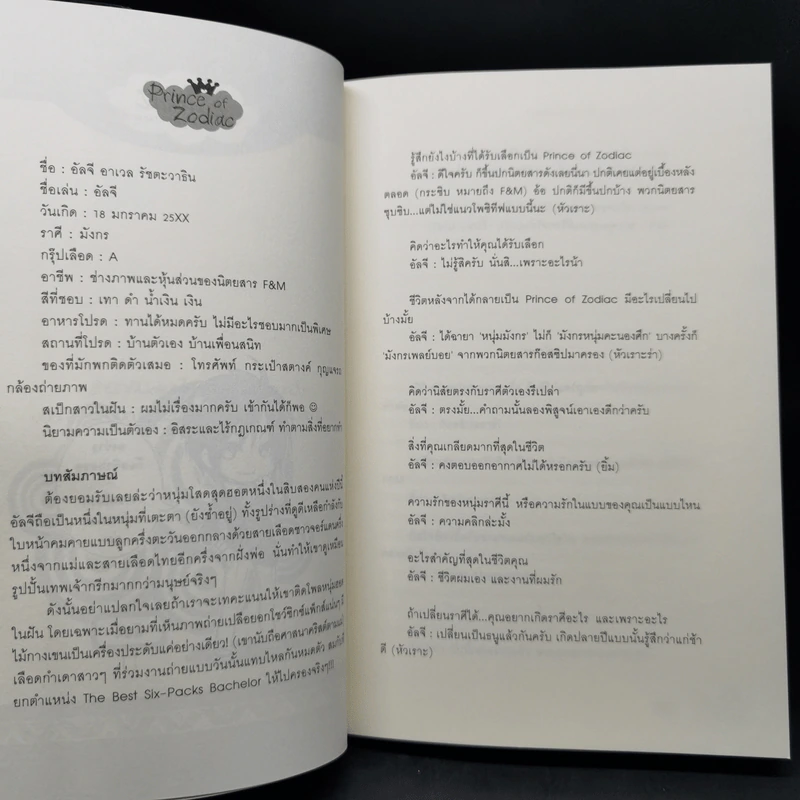 Prince of
Zodiac
ชื่อ : อัลจี อาเวล รัชตะวาธิน
ชื่อเล่น : อัลจี
วันเกิด : 18 มกราคม 25XX
ราศี : มังกร
กรุ๊ปเลือด : A
อาชีพ : ช่างภาพและหุ้นส่วนของนิตยสาร F&M
สีที่ชอบ : เทา ดำ น้ำเงิน เงิน
อาหารโปรด : ทานได้หมดครับ ไม่มีอะไรชอบมากเป็นพิเศษ
สถานที่โปรด : บ้านตัวเอง บ้านเพื่อนสนิท
ของที่มักพกติดตัวเสมอ : โทรศัพท์ กระเป๋าสตางค์ กุญแจรถ
กล้องถ่ายภาพ
สเป็กสาวในฝัน : ผมไม่เรื่องมากครับ เข้ากันได้ก็พอ ☺
นิยามความเป็นตัวเอง : อิสระและไร้กฎเกณฑ์ ทำตามสิ่งที่อยากทำ
บทสัมภาษณ์
ต้องยอมรับเลยล่ะว่าหนุ่มโสดสุดฮอตหนึ่งในสิบสองคนแห่งปีนี้
อัลจีถือเป็นหนึ่งในหนุ่มที่เตะตา (ยังซ้ำอยู่) ทั้งรูปร่างที่ดูดีเหลือกำลังกับ
ใบหน้าคมคายแบบลูกครึ่งตะวันออกกลางด้วยสายเลือดซาวจอร์แดนครึ่ง
หนึ่งจากแม่และสายเลือดไทยอีกครึ่งจากฝั่งพ่อ นั่นทำให้เขาดูเหมือน
รูปปั้นเทพเจ้ากรีกมากกว่ามนุษย์จริงๆ
ดังนั้นอย่าแปลกใจเลยถ้าเราจะเทคะแนนให้เขาติดโพลหนุ่มฮอต
ในฝัน โดยเฉพาะเมื่อยามที่เห็นภาพถ่ายเปลือยอกโชว์ซิกซ์แพ็กส์แน่นๆ มี
ไม้กางเขนเป็นเครื่องประดับแค่อย่างเดียว! (เขานับถือศาสนาคริสต์ตามแม่)
เลือดกำเดาสาวๆ ที่ร่วมงานถ่ายแบบวันนั้นแทบไหลกันหมดตัว สมกับที่
ยกตำแหน่ง The Best Six-Packs Bachelor ให้ไปครองจริงๆ!!!
รู้สึกยังไงบ้างที่ได้รับเลือกเป็น Prince of Zodiac
อัลจี : ดีใจครับ ก็ขึ้นปกนิตยสารดังเลยนี่นา ปกติเคยแต่อยู่เบื้องหลัง
ตลอด (กระซิบ หมายถึง F&M) อ้อ ปกติก็มีขึ้นปกบ้าง พวกนิตยสาร
ซุบซิบ...แต่ไม่ใช่แนวโพซิทีฟแบบนี้นะ (หัวเราะ)
คิดว่าอะไรทำให้คุณได้รับเลือก
อัลจี : ไม่รู้สิครับ นั่นสิ...เพราะอะไรน้า
ชีวิตหลังจากได้กลายเป็น Prince of Zodiac มีอะไรเปลี่ยนไป
บ้างมั้ย
อัลจี : ได้ฉายา 'หนุ่มมังกร' ไม่ก็ 'มังกรหนุ่มคะนองศึก' บางครั้งก็
'มังกรเพลย์บอย' จากพวกนิตยสารก๊อสซิปมาครอง (หัวเราะร่า)
คิดว่านิสัยตรงกับราศีตัวเองรึเปล่า
อัลจี : ตรงมั้ย...คำถามนั้นลองพิสูจน์เอาเองดีกว่าครับ
สิ่งที่คุณเกลียดมากที่สุดในชีวิต
อัลจี : คงตอบออกอากาศไม่ได้หรอกครับ (ยิ้ม)
ความรักของหนุ่มราศีนี้ หรือความรักในแบบของคุณเป็นแบบไหน
อัลจี : ความคลิกล่ะมั้ง
อะไรสำคัญที่สุดในชีวิตคุณ
อัลจี : ชีวิตผมเอง และงานที่ผมรัก
ถ้าเปลี่ยนราศีได้...คุณอยากเกิดราศีอะไร และเพราะอะไร
อัลจี : เปลี่ยนเป็นธนูแล้วกันครับ เกิดปลายปีแบบนั้นรู้สึกว่าแก่ช้า
ดี (หัวเราะ)